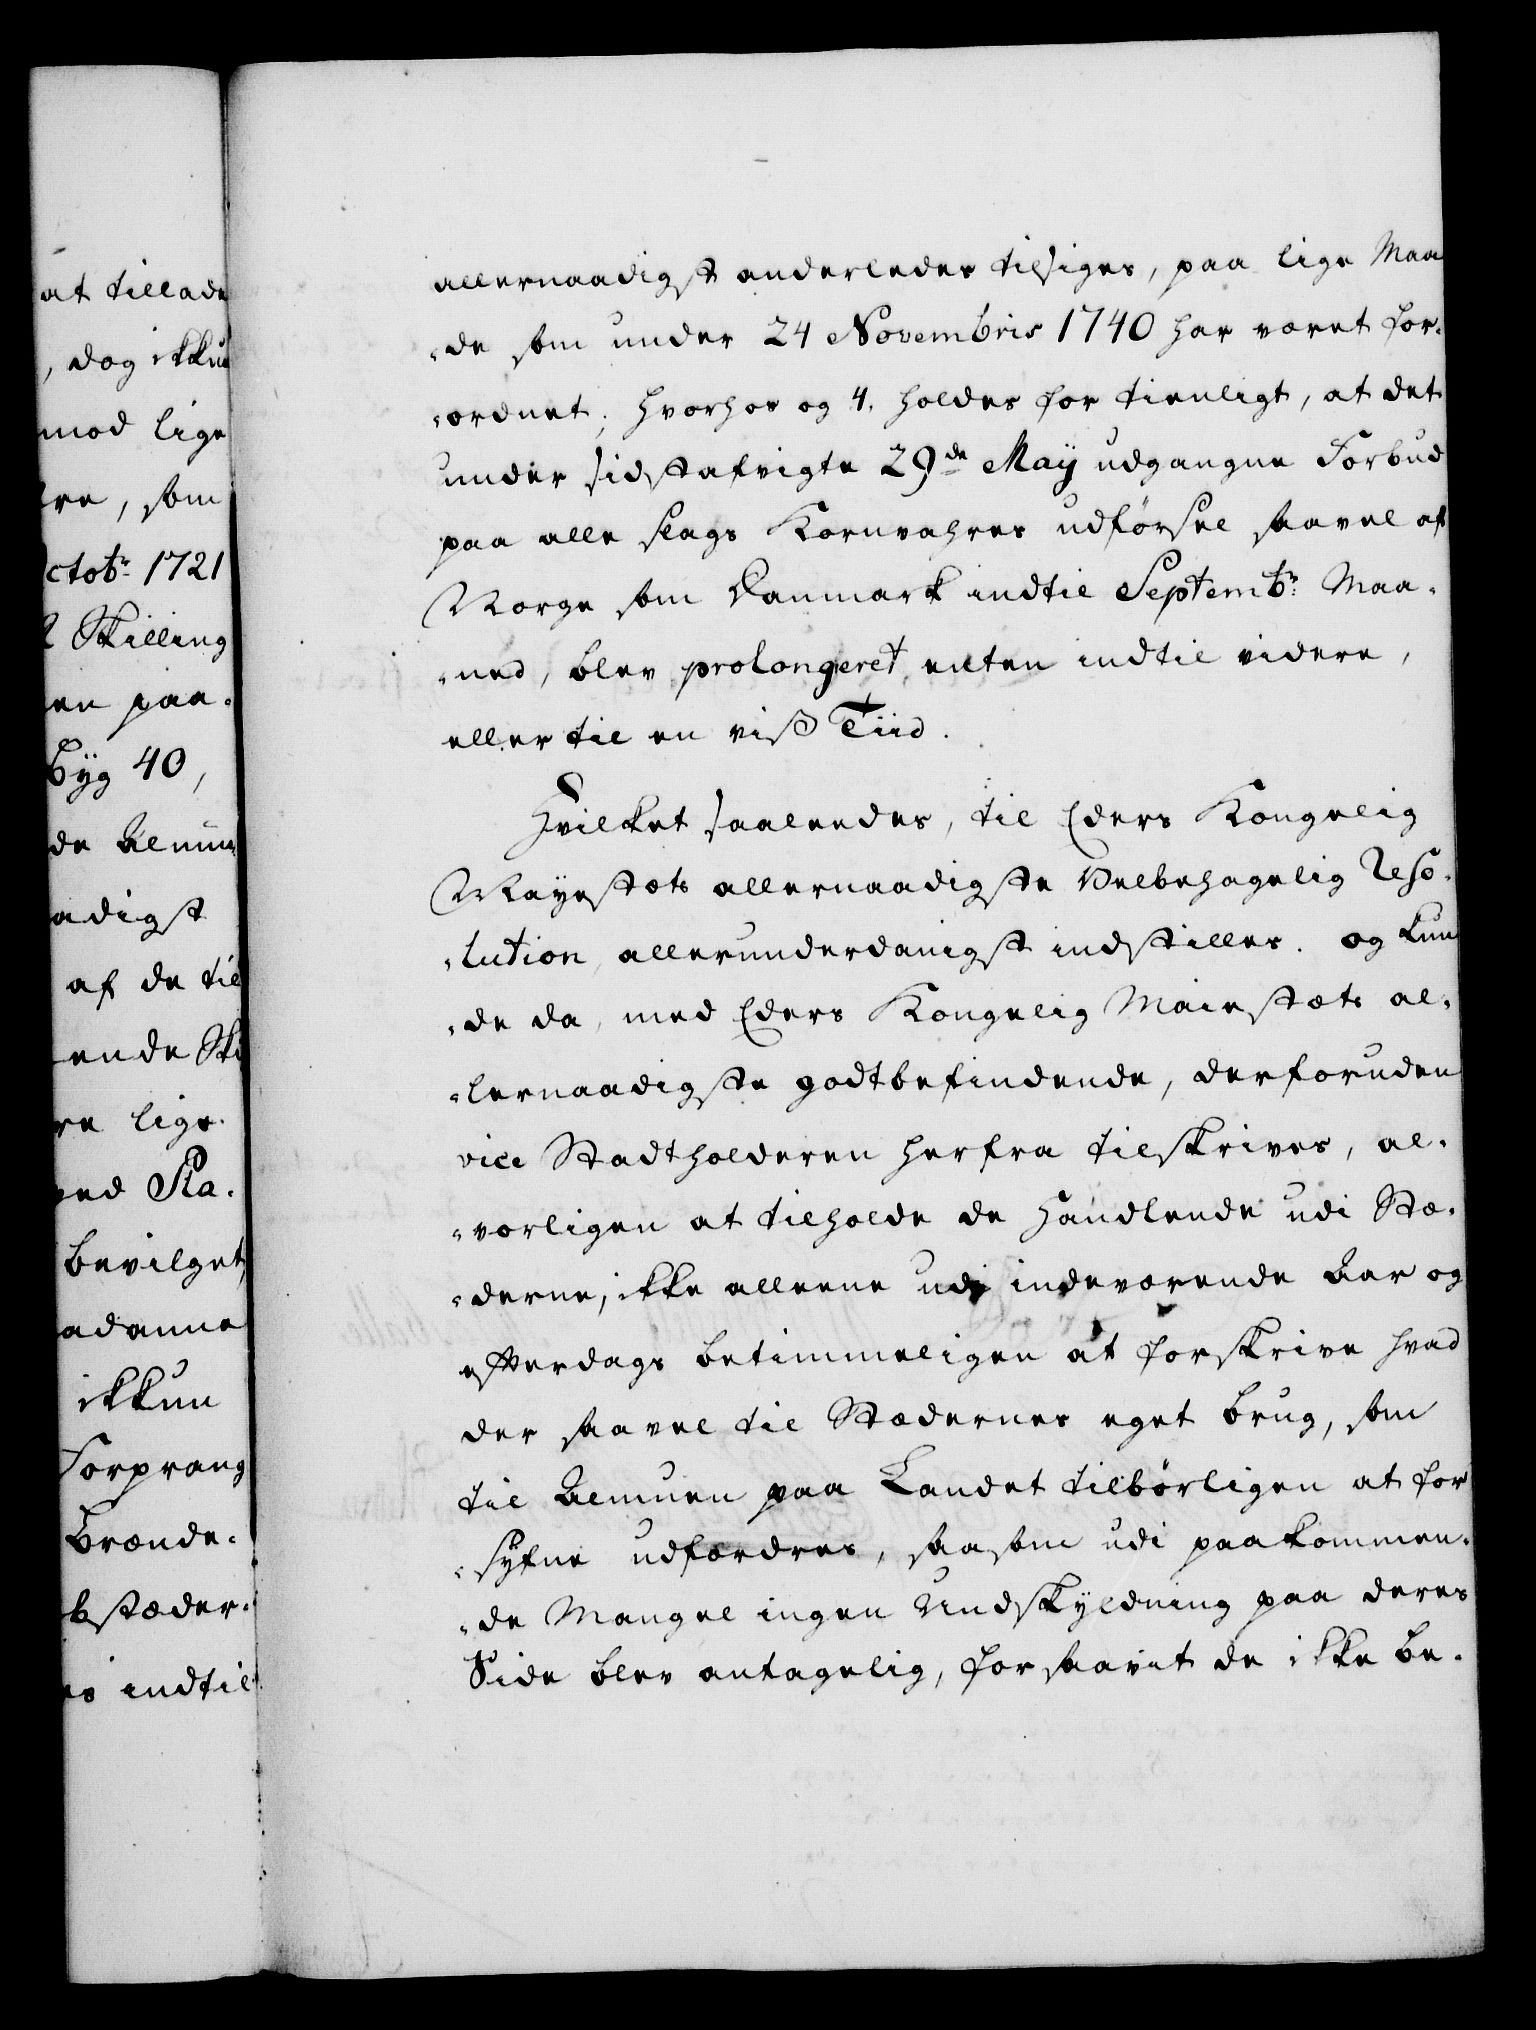 at tillade
, dog ikkun
mod lige
re, som
ctobr. 1721
2 Skilling
en paa-
Byg 40,
de Almu
adigst
af de til
ende Ski
re lige-
ved Pla-
bevilget,
adanne
ikkun
Forprang
Brænde-
bstæder-
es indtil
allernaadigst anderledes tilsiges, paa lige Maa
-de som under 24 Novembris 1740 har været for-
-ordnet; hvorhos og 4. holdes for tienligt, at det
under sidstafvigte 29de Maÿ udgangne Forbud
paa alle slags Kornvahres udførsel saavel af
Norge som Danmark indtil Septembr: Maa-
-ned, blev prolongeret, enten indtil videre,
eller til en viss Tiid.
Hvilket saaledes, til Eders Kongelig
Mayestæts allernaadigste Velbehagelig Reso-
-lution, allerunderdanigst indstilles. og kun
-de da, med Eders Kongelig Maiestæts al-
-lernaadigste godtbefindende, derforuden
vice Stadtholderen herfra tilskrives, al-
-vorligen at tilholde de Handlende udi Stæ-
-derne, ikke alleene udi indeværende Aar og
efterdags betimmeligen at forskrive hvad
der saavel til Stædernes eget brug, som
til Almuen paa Landet tilbørligen at for
-syfne udfordres, saasom udi paakommen-
-de Mangel ingen Undskyldning paa deres
Side blev antagelig, forsaavit de ikke be-